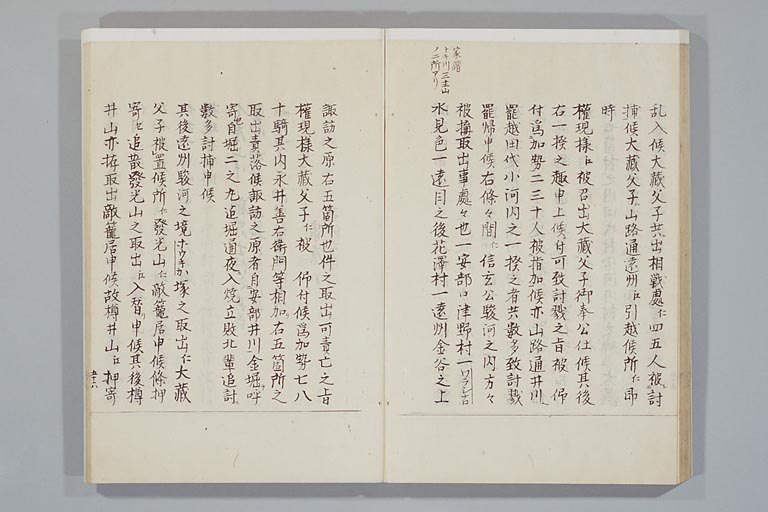 家譜
トキ川三土山
ノ二所アリ
乱入候大蔵父子共出相戦處ニ四五人被討
捕候大蔵父子山路通遠州江引越候所ニ即
時
権現様江被召出大蔵父子御奉公仕候其後
右一揆之趣申上候付可致討戮之旨被 仰
付為加勢二三十人被指加候亦山路通井川
罷越田代小河内之一揆之者共數多致討戮
罷帰申候右條々間ニ信玄公駿河之内方々
被搆取出事處々也一安部口津野村一
水見色一遠目之後花澤村一遠州金谷之上
諏訪之原右五箇所也件之取出可責亡之旨
権現様大蔵父子ニ被 仰付候為加勢七八
十騎其内永井善右衛門等相加右五箇所之
取出責落候諏訪之原者自安部井川金堀呼
寄自堀二之丸追堀通夜入焼立敗北輩追討
數多討捕申候
其後遠州駿河之境塚之取出ニ大蔵
父子被置候所ニ發光山ニ敵籠居申候條押
寄追散發光山之取出江入替申候其後樽
井山亦拵取出敵籠居申候故樽井山江押寄